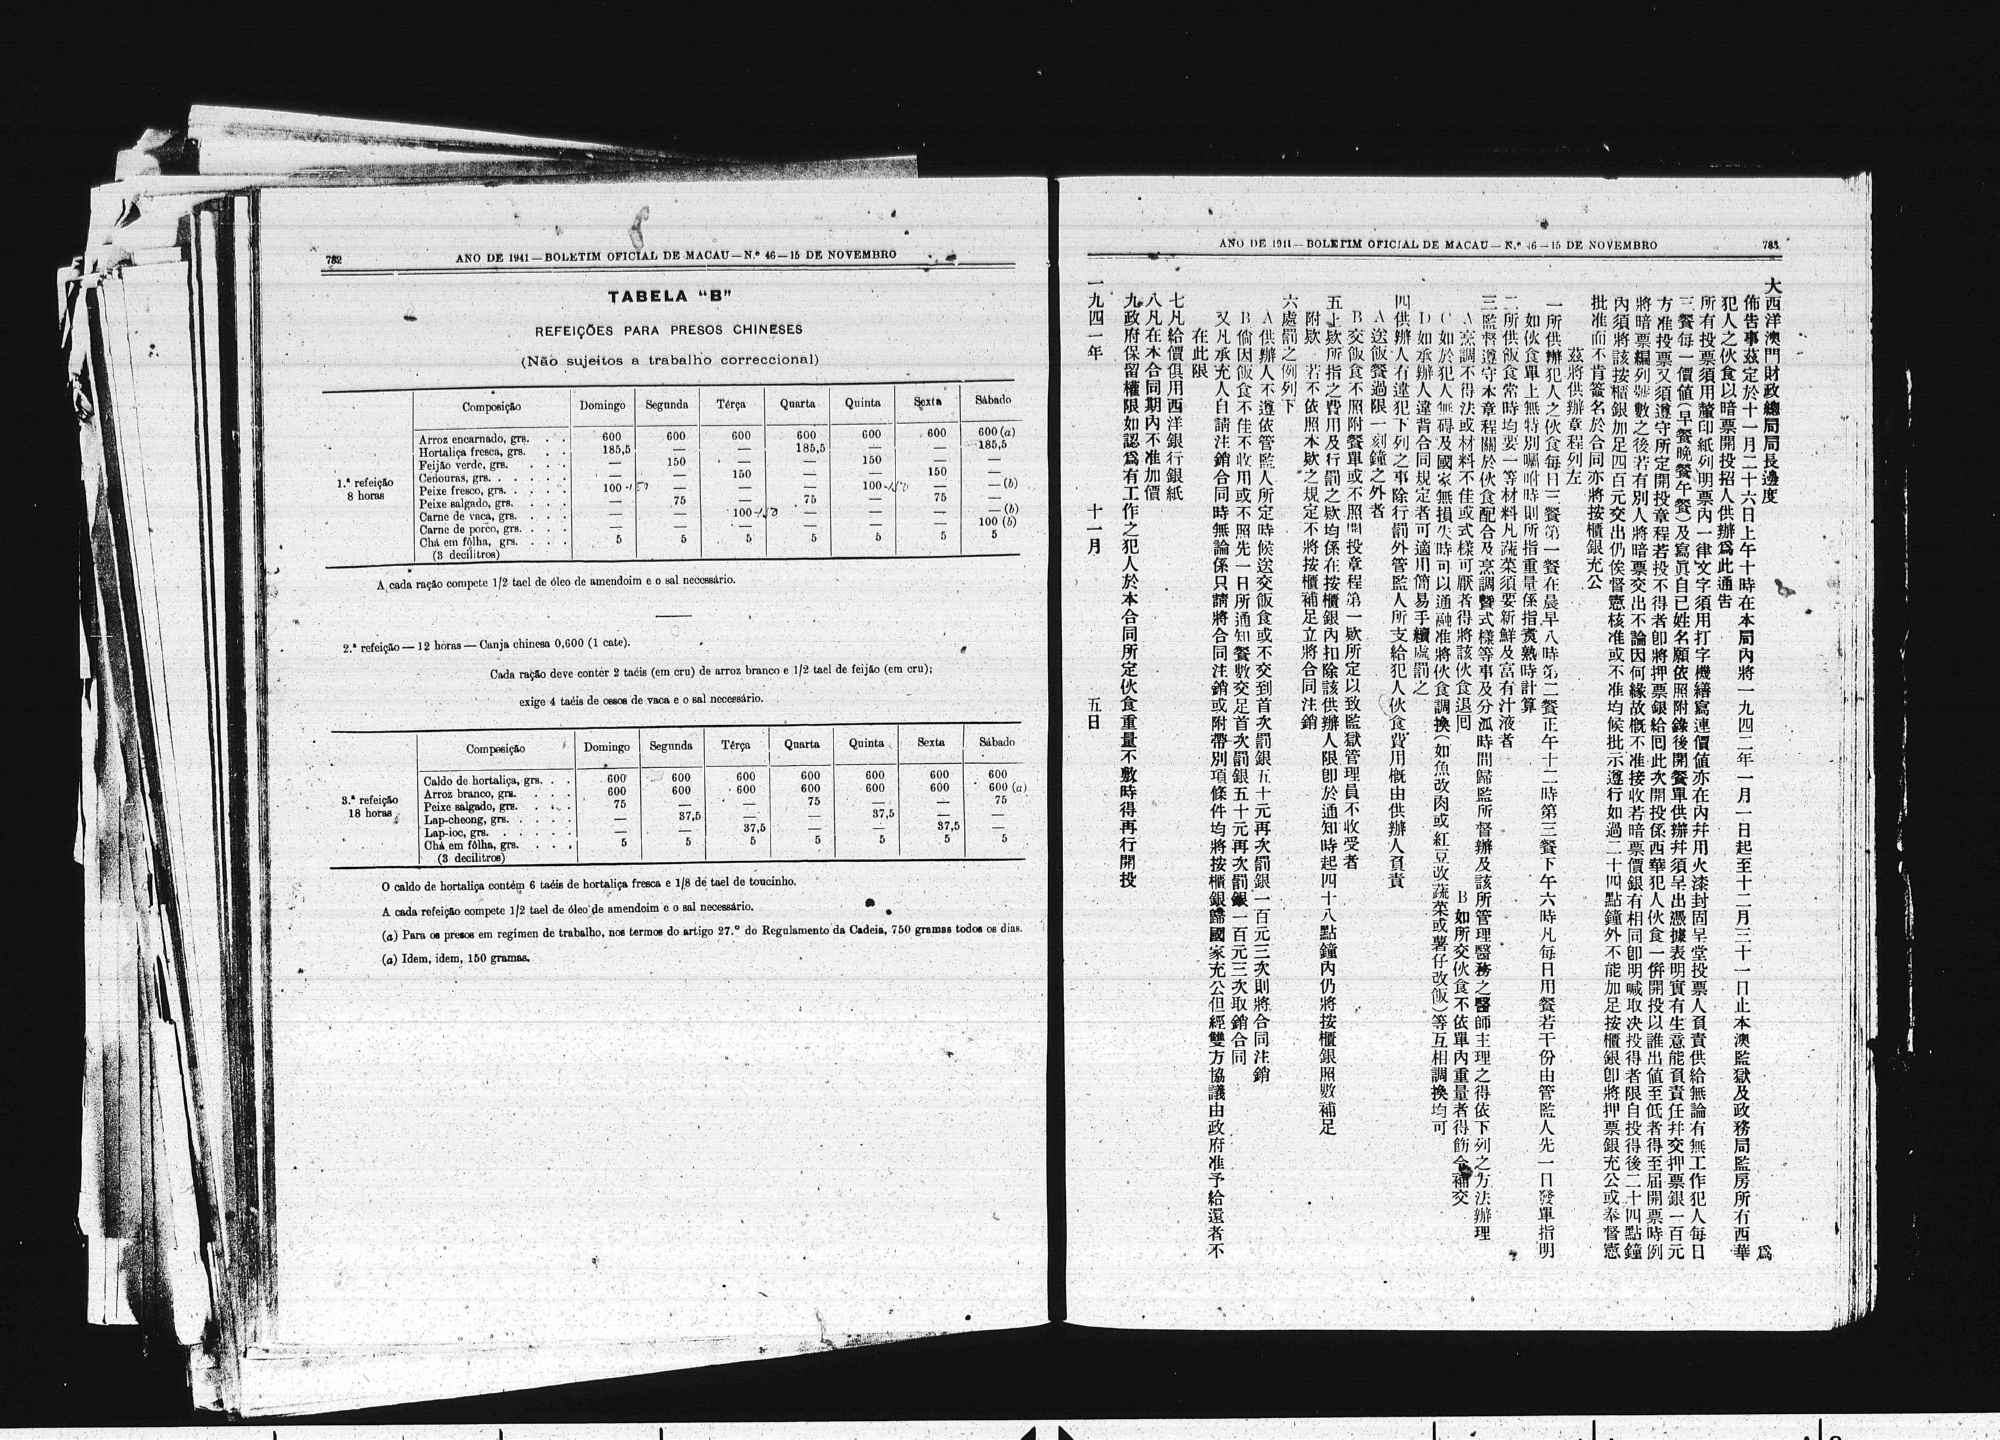 782
ANO DE 1941 — BOLETIM OFICIAL DE MACAU — N.º 46 — 15 DE NOVEMBRO
TABELA "B"
REFEIÇÕES PARA PRESOS CHINESES
(Não sujeitos a trabalho correccional)
Composição Domingo Segunda Têrça Quarta Quinta Sexta Sábado
1.ª refeição
8 horas
Arroz encarnado, grs. . . 600 600 600 600 600 600 600 (a)
Hortaliça fresca, grs. . . 185,5 — — 185,5 — — 185,5
Feijão verde, grs. . . . — 150 — — 150 — —
Cenouras, grs. . . . . . — — 150 — — 150 —
Peixe fresco, grs. . . . . 100 — — — 100 — — (b)
Peixe salgado, grs. . . . — 75 — 75 — 75 —
Carne de vaca, grs. . . . — — 100 — — — — (b)
Carne de porco, grs. . . . — — — — — — 100 (b)
Chá em fôlha, grs. . . . 5 5 5 5 5 5 5
(3 decilitros)
A cada ração compete 1/2 tael de óleo de amendoim e o sal necessário.
2.ª refeição — 12 horas — Canja chinesa 0,600 (1 cate).
Cada ração deve conter 2 taéis (em cru) de arroz branco e 1/2 tael de feijão (em cru);
exige 4 taéis de ossos de vaca e o sal necessário.
Composição Domingo Segunda Têrça Quarta Quinta Sexta Sábado
3.ª refeição
18 horas
Caldo de hortaliça, grs. . . 600 600 600 600 600 600 600
Arroz branco, grs. . . . . 600 600 600 600 600 600 600 (a)
Peixe salgado, grs. . . . 75 — — 75 — — 75
Lap-cheong, grs. . . . . — 37,5 — — 37,5 — —
Lap-ioc, grs. . . . . . — — 37,5 — — 37,5 —
Chá em fôlha, grs. . . . 5 5 5 5 5 5 5
(3 decilitros)
O caldo de hortaliça contém 6 taéis de hortaliça fresca e 1/8 de tael de toucinho.
A cada refeição compete 1/2 tael de óleo de amendoim e o sal necessário.
(a) Para os presos em regímen de trabalho, nos termos do artigo 27.º do Regulamento da Cadeia, 750 gramas todos os dias.
(a) Idem, idem, 150 gramas.
ANO DE 1941 — BOLETIM OFICIAL DE MACAU — N.º 46 — 15 DE NOVEMBRO
783
大西洋澳門財政總局局長邊度 爲
佈告事茲定於十一月二十六日上午十時在本局內將一九四二年一月一日起至十二月三十一日止本澳監獄及政務局監房所有西華
犯人之伙食以暗票開投招人供辦爲此通告
所有投票須用釐印紙列明票內一律文字須用打字機繕寫連價値亦在內幷用火漆封固呈堂投票人負責供給無論有無工作犯人每日
三餐每一價値(早餐晚餐午餐)及寫眞自已姓名願依照附錄後開餐單供辦幷須呈出憑據表明實有生意能負責任幷交押票銀一百元
方准投票又須遵守所定開投章程若投不得者卽將押票銀給囘此次開投係西華犯人伙食一倂開投以誰出値至低者得至屆開票時例
將暗票編列號數之後若有別人將暗票交出不論因何緣故槪不准接收若暗票價銀有相同卽明喊取決投得者限自投得後二十四點鐘
內須將該按櫃銀加足四百元交出仍俟督憲核准或不准均候批示遵行如過二十四點鐘外不能加足按櫃銀卽將押票銀充公或奉督憲
批准而不肯簽名於合同亦將按櫃銀充公
茲將供辦章程列左
一所供辦犯人之伙食每日三餐第一餐在晨早八時第二餐正午十二時第三餐下午六時凡每日用餐若干份由管監人先一日發單指明
如伙食單上無特別囑咐時則所指重量係指煑熟時計算
二所供飯食常時均要一等材料凡蔬菜須要新鮮及富有汁液者
三監督遵守本章程關於伙食配合及烹調曁式樣等事及分派時間歸監所督辦及該所管理醫務之醫師主理之得依下列之方法辦理
A烹調不得法或材料不佳或式樣可厭者得將該伙食退囘 B如所交伙食不依單內重量者得飭令補交
C如於犯人無碍及國家無損失時可以通融准將伙食調換(如魚改肉或紅豆改蔬菜或薯仔改飯)等互相調換均可
D如承辦人違背合同規定者可適用簡易手續處罰之
四供辦人有違犯下列之事除行罰外管監人所支給犯人伙食費用槪由供辦人負責
A送飯餐過限一刻鐘之外者
B交飯食不照附餐單或不照開投章程第一欵所定以致監獄管理員不收受者
五上欵所指之費用及行罰之欵均係在按櫃銀內扣除該供辦人限卽於通知時起四十八點鐘內仍將按櫃銀照數補足
附欵 若不依照本欵之規定不將按櫃補足立將合同注銷
六處罰之例列下
A供辦人不遵依管監人所定時候送交飯食或不交到首次罰銀五十元再次罰銀一百元三次則將合同注銷
B倘因飯食不佳不收用或不照先一日所通知餐數交足首次罰銀五十元再次罰銀一百元三次取銷合同
又凡承充人自請注銷合同時無論係只請將合同注銷或附帶別項條件均將按櫃銀歸國家充公但經雙方協議由政府准予給還者不
在此限
七凡給價俱用西洋銀行銀紙
八凡在本合同期內不准加價
九政府保留權限如認爲有工作之犯人於本合同所定伙食重量不敷時得再行開投
一九四一年 十一月 五日